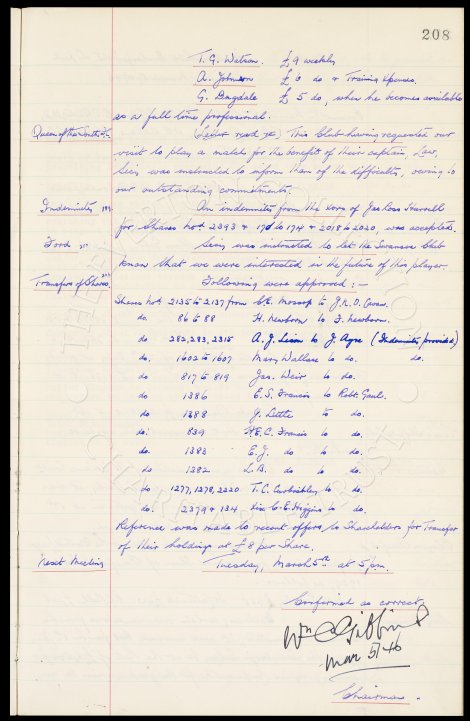 208
T. G. Watson. £9 weekly
A. Johnson £6 do & Training Expenses.
G. Dugdale £5 do, when he becomes available
as a full time professional.
Queen of the South F.C. (Letter read re) This Club having requested our
visit to play a match for the benefit of their captain, Law,
Secy was instructed to inform them of the difficulty, owing to
our outstanding commitments.
Indemnity An indemnity from the exors of Jas Ross
for Shares Nos 2393 & 170 to 174 & 2018 to 2020, was accepted.
Ford Secy was instructed to let the Swansea Club
know that we were interested in the future of this player.
Transfers of Shares Following were approved :-
Shares Nos 2135 to 2137 from C.E. Mossop to J.R.O. Evans.
do. 86 to 88 H. Newborn to F. Newborn.
do 282, 283, 2315 A. J. to J. Ayre (Indemnity provided)
do. 1602 to 1607 Mary Wallace to do. do.
do 817 to 819 Jas. Weir to do.
do 1386 E. S. Francis to Robt. Gaul.
do 1388 J. Little to do.
do: 839 H.E.C. Francis to do.
do 1383 E. J. do to do.
do 1382 L. B. do to do.
do 1277, 1278, 2220 T. C. to do.
do. 2379 & 134 C. E. Higgins to do.
Reference was made to recent offers to Shareholders for Transfer
of their holdings at £8 per Share.
Next Meeting Tuesday, March 5th at 5 pm.
Confirmed as correct
Wm C Gibbins
Mar 5/46
Chairman.